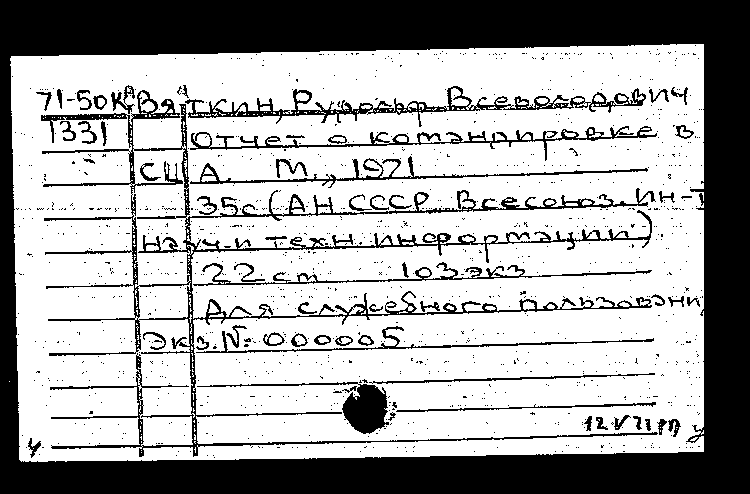 71-50к Вяткин, Рудольф Всеволодович
1331 Отчет о командировке в
США. М., 1971
35с (АН СССР Всесоюз. ин-т
науч. и техн. информации).
22 cm 103 экз
Для служебного пользовани
Экз. № 000005
12 V 71